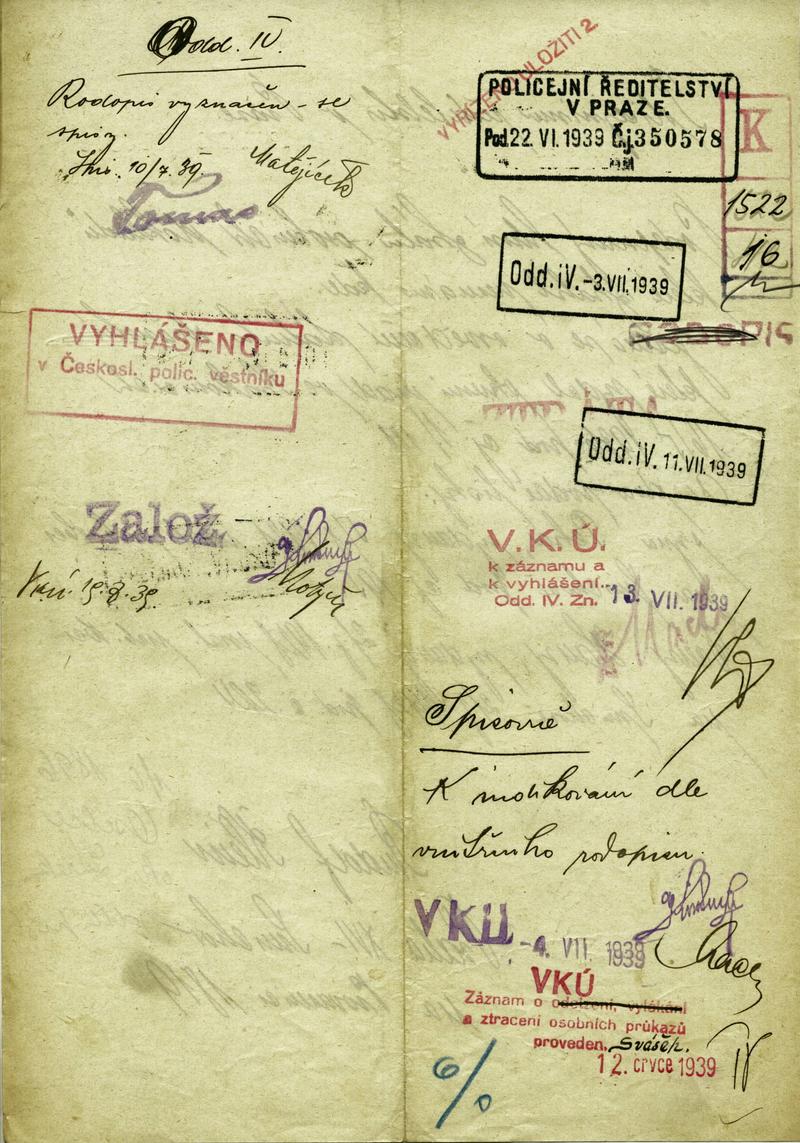 Odd. IV.
Rodopis vyznačen - se
spisy.
10/7. 39. Matějíček
Tomas
VYHLÁŠENO
v Českosl. polic. věstníku
Založ
VKÚ 19.8.39.
VYŘÍZENO ULOŽITI 2
POLICEJNÍ ŘEDITELSTVÍ
V PRAZE.
Pod. 22. VI. 1939 Čj. 350578
K
1522
16
Odd. iV. -3. VII. 1939
RODOPIS
Odd. iV. 11. VII. 1939
V. K. Ú.
k záznamu a
k vyhlášení..
Odd. IV. Zn. 13. VII. 1939
Spisovně
K indikování dle
vnitřního rodopisu.
VKÚ. -4. VII. 1939
VKÚ
Záznam o odcizení, vylákání
a ztracení osobních průkazů
proveden. Svášek.
12. crvce 1939
IV
6/0